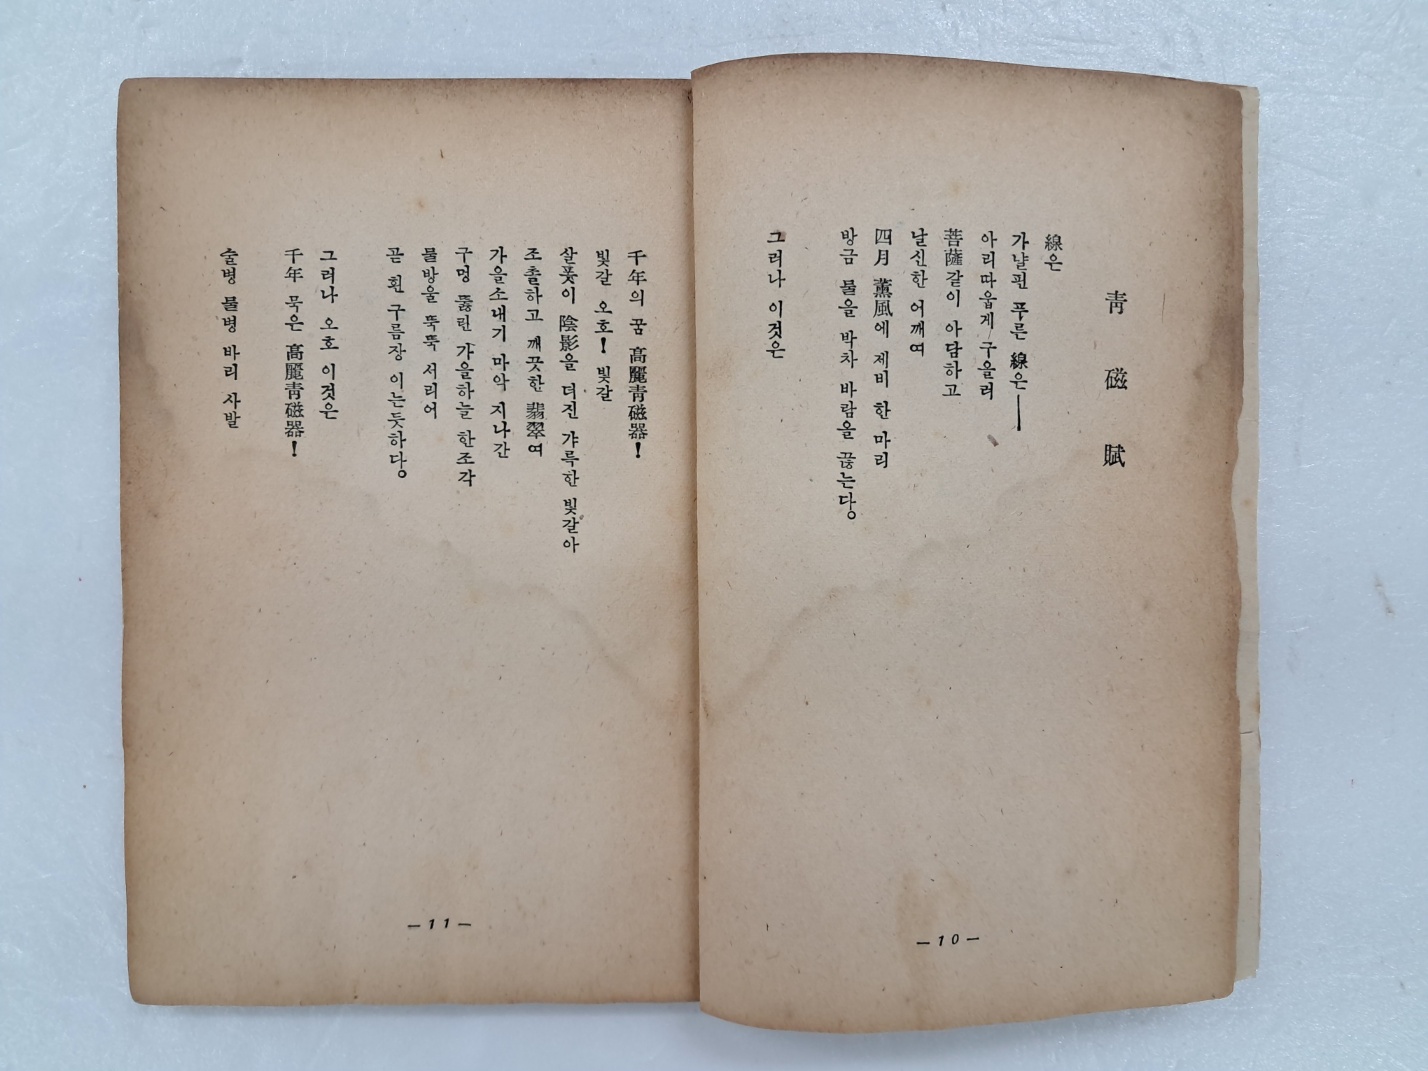 靑磁賦
線은
가냘핀 푸른 線은――
아리따웁게 구을러
菩薩같이 아담하고
날신한 어깨여
四月 薰風에 제비 한 마리
방금 물을 박차 바람을 끊는다。
그러나 이것은
—10—
千年의 꿈 高麗靑磁器!
빛갈 오호! 빛갈
살풋이 陰影을 더진 갸륵한 빛갈아
조촐하고 깨끗한 翡翠여
가을소내기 마악 지나간
구멍 뚫린 가을하늘 한조각
물방울 뚝뚝 서리어
곧 흰 구름장 이는듯하다。
그러나 오호 이것은
千年 묵은 高麗靑磁器!
술병 물병 바리 사발
—11—